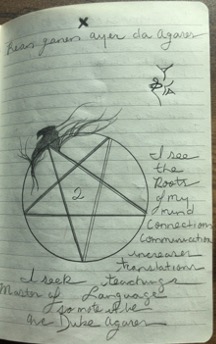 ayer da Agares
2
I see
the
Roots
of my
mind
Connections
Communication
increases
translations
I seek teachings
Master of Language
so mote it be
Duke Agares